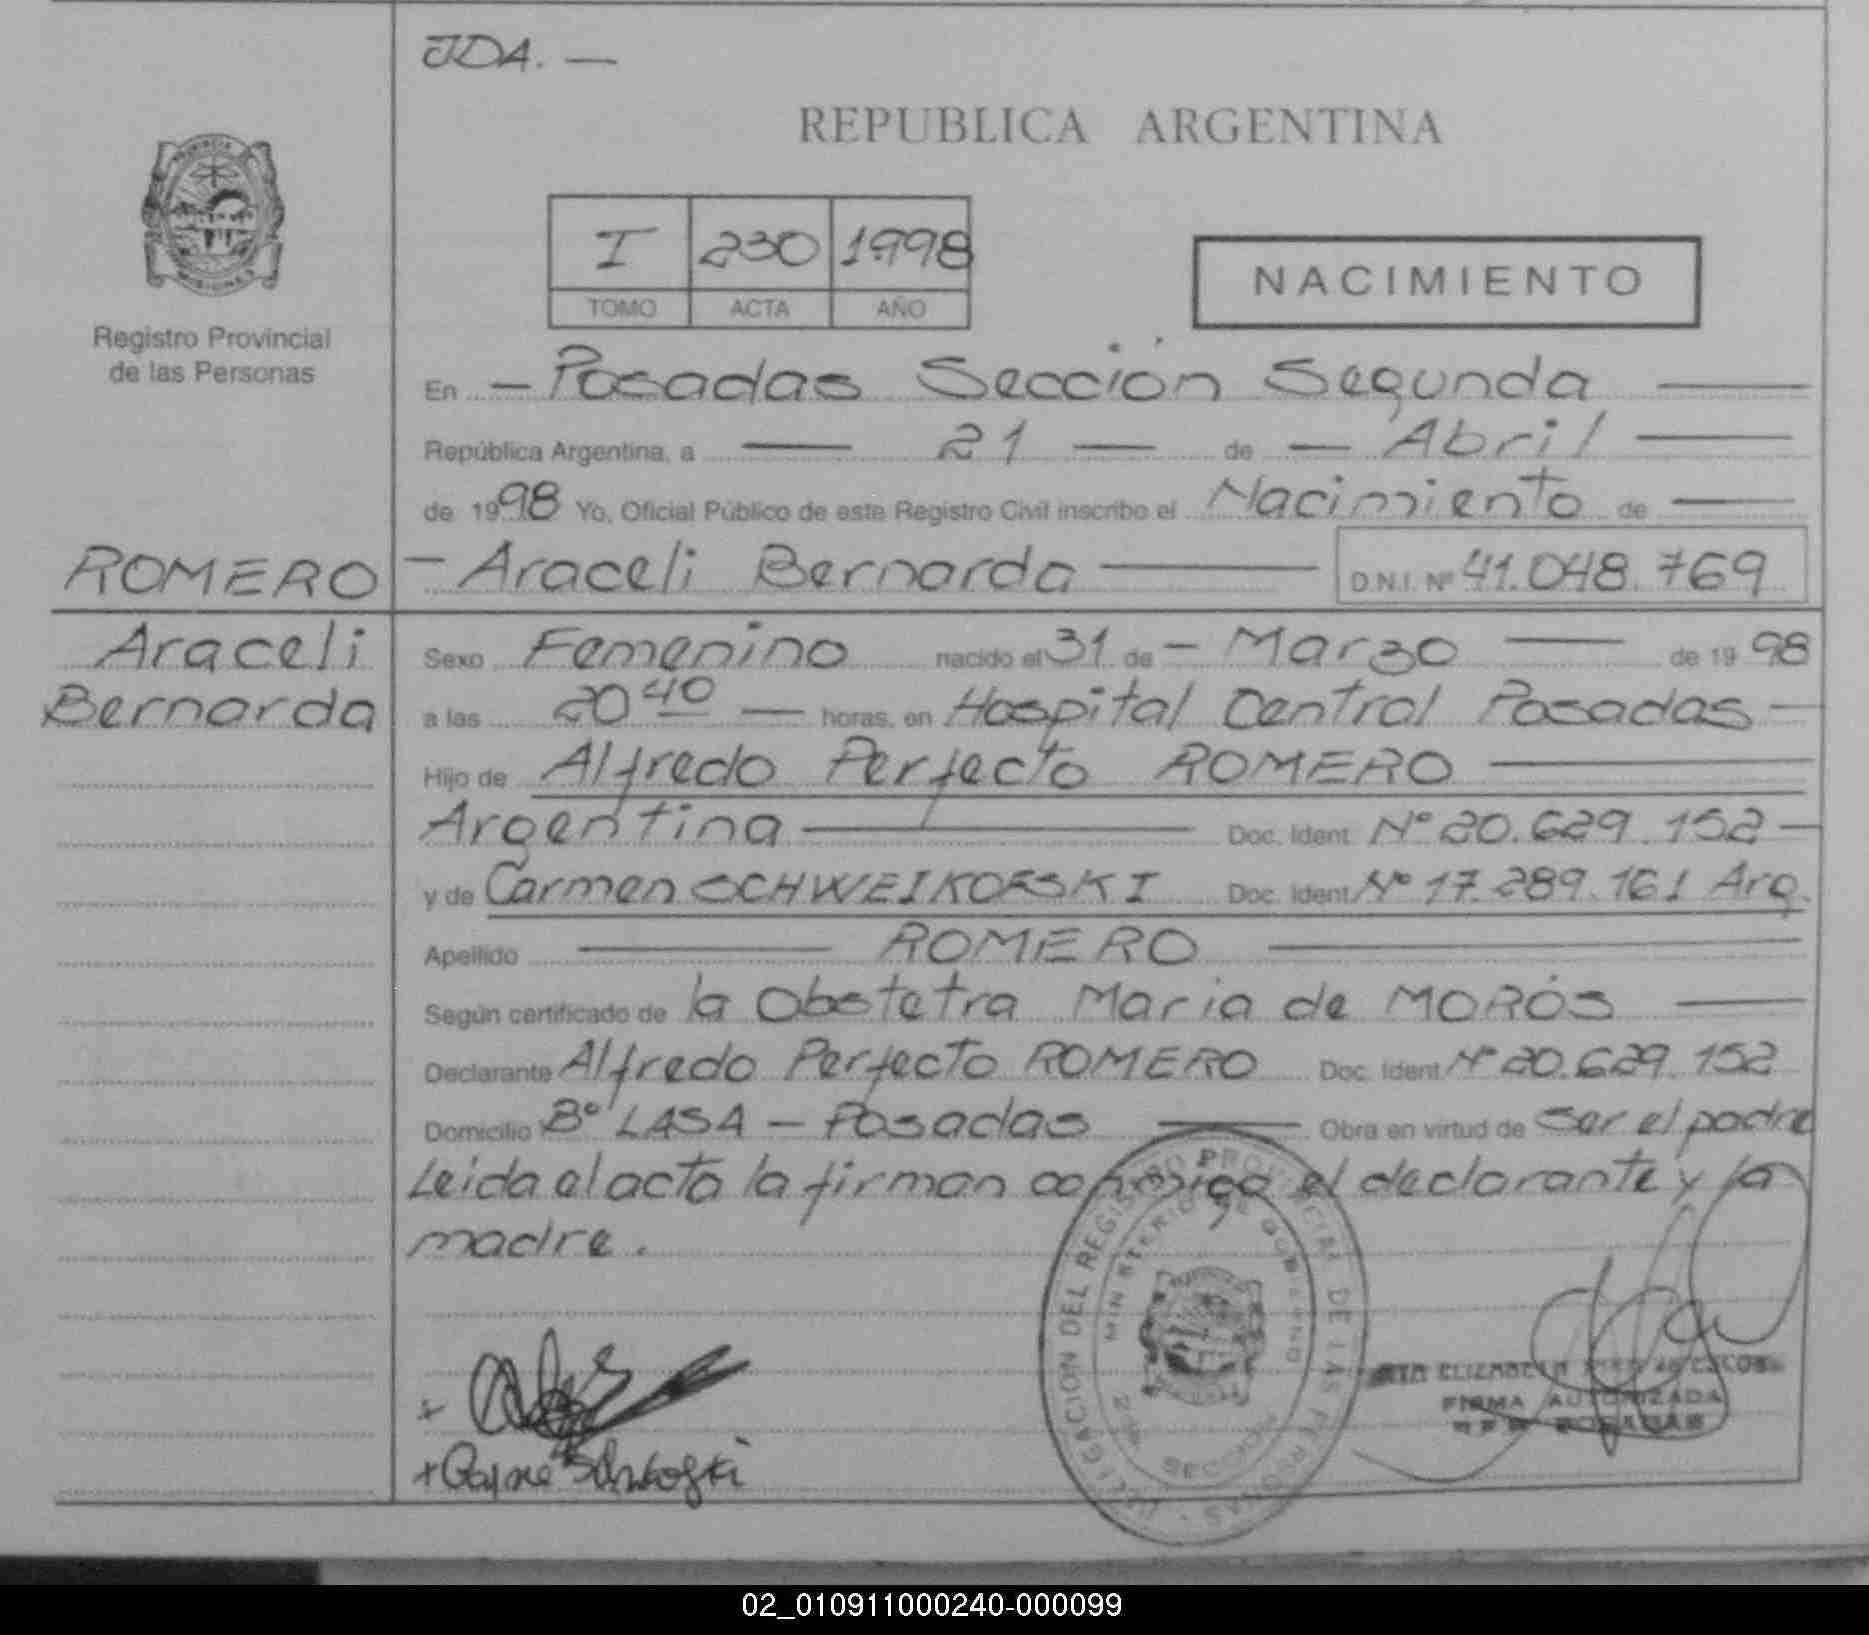 JDA. —
REPUBLICA ARGENTINA
PROVINCIA
MISIONES
I 230 1998
TOMO ACTA AÑO
NACIMIENTO
Registro Provincial
de las Personas
En — Posadas Sección Segunda —
República Argentina, a — 21 — de — Abril —
de 1998 Yo, Oficial Público de este Registro Civil inscribo el Nacimiento de —
ROMERO — Araceli Bernarda — D.N.I. Nº 41.048.769
Araceli
Bernarda
Sexo Femenino nacido el 31 de — Marzo — de 1998
a las 20 40 — horas, en Hospital Central Posadas —
Hijo de Alfredo Perfecto ROMERO —
Argentina — Doc. Ident. Nº 20.629.152 —
y de Carmen SCHWEIKOFSKI Doc. Ident. Nº 17.289.161 Arg.
Apellido — ROMERO —
Según certificado de la Obstetra Maria de MORÓS —
Declarante Alfredo Perfecto ROMERO Doc. Ident. Nº 20.629.152
Domicilio Bº LASA — Posadas — Obra en virtud de ser el padre
Leida el acta la firman conmigo el declarante y la
madre.
DELEGACION DEL REGISTRO PROVINCIAL DE LAS PERSONAS
MINISTERIO DE GOBIERNO
2da SECCION
ELIZABETH
FIRMA AUTORIZADA
POSADAS
02_010911000240-000099